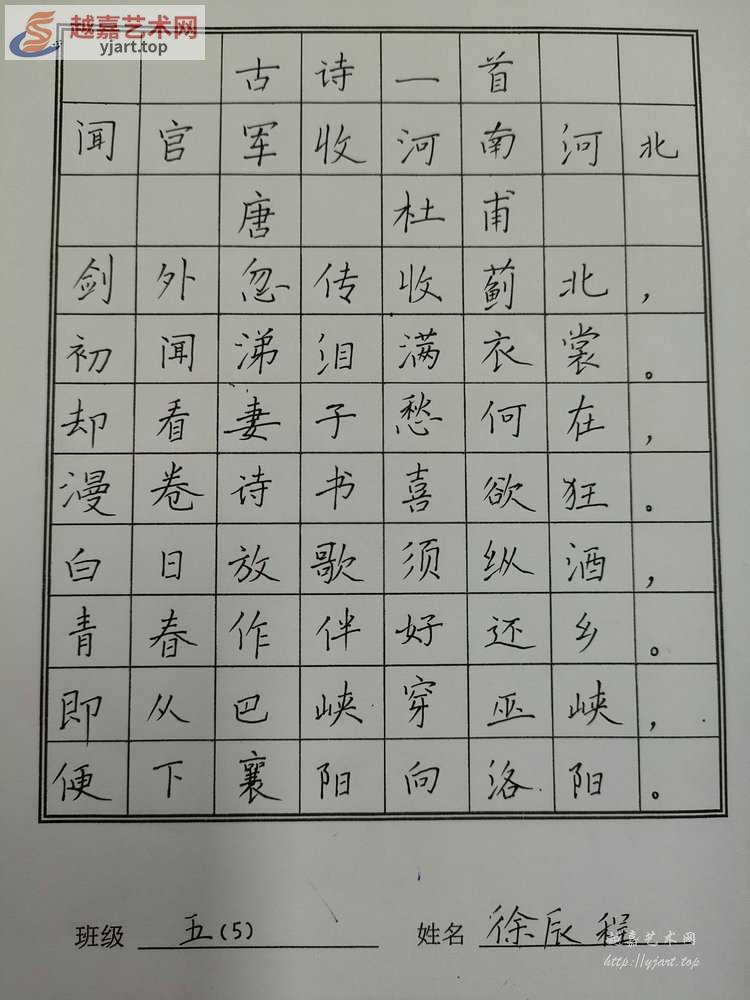 越嘉艺术网
yjart.top
古诗一首
闻官军收河南河北
唐 杜甫
剑外忽传收蓟北，
初闻涕泪满衣裳。
却看妻子愁何在，
漫卷诗书喜欲狂。
白日放歌须纵酒，
青春作伴好还乡。
即从巴峡穿巫峡，
便下襄阳向洛阳。
班级 五(5) 姓名 徐辰程
越嘉艺术网
http://yjart.top